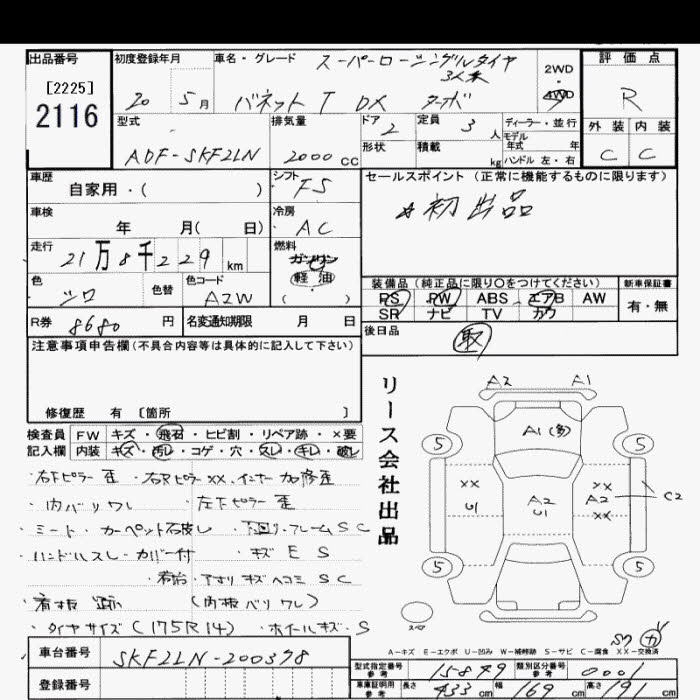 出品番号 初度登録年月 車名・グレード スーパーローシングルタイヤ 2WD 評価点
3人乗
[2225]
2116 20 5月 バネットT DX ターボ 4WD R
型式 排気量 ドア 定員 ディーラー・並行 外装 内装
ADF-SKF2LN 2000cc 2 3人 モデル年式 年 C C
形状 積載 kg ハンドル 左・右
車歴 シフト セールスポイント(正常に機能するものに限ります)
自家用・( ) F5 ☆初出品
車検 冷房
年 月( 日) AC
走行 燃料
21万8千229km ガソリン
色 色替 色コード 軽油
シロ A2W ( ・ )
装備品(純正品に限り○をつけてください) 新車保証書
PS PW ABS エアB AW 有・無
SR ナビ TV カワ
R券 8680円 名変通知期限 月 日 後日品
注意事項申告欄(不具合内容等は具体的に記入して下さい) 取
修復歴 有 〔箇所 〕
リース会社出品
検査員 FW キズ・飛石・ヒビ割・リペア跡・×要
記入欄 内装 キズ・汚レ・コゲ・穴・スレ・キレ・破レ
・右下ピラー歪 ・右Rピラーxx、インナー加修歪
・内バリワレ ・左下ピラー歪
・シート・カーペット ・下回リ・フレームSC
・ハンドルスレ・カバー付 ・キズES
・荷台・アオリキズヘコミSC
・看板跡 (内板バリワレ)
・タイヤサイズ(175R14) ・ホイールキズ・S
A2 A1
A1(多)
5 5
xx xx
U1 A2 A2 C2
U1 xx
5 5
スペア
サワ カ
A-キズ E-エクボ U-凹み W-補修跡 S-サビ C-腐食 XX-交換済
車台番号 SKF2LN-200378
登録番号
型式指定番号 参考 15849 類別区分番号 参考 0001
車庫証明用 参考 長さ 433cm 幅 169cm 高さ 191cm